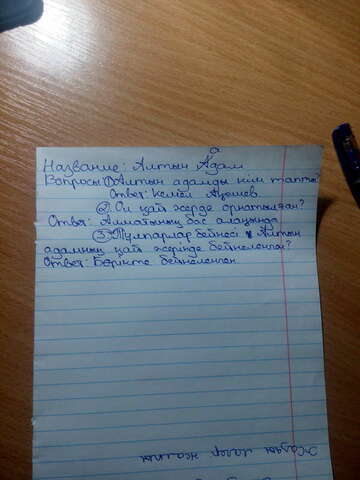 Название: Алтын Адам
Вопросы: ① Алтын адамды кім тапты?
Ответ: Кемел Ақышев
② Ол қай жерде орнатылған?
Ответ: Алматының бас алаңында
③ Тұлпарлар бейнесі Алтын
адамның қай жерінде бейнеленген?
Ответ: Бөрікте бейнеленген